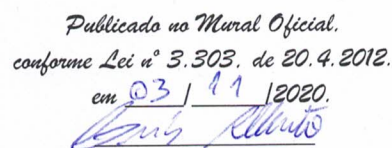 Publicado no Mural Oficial.
conforme Lei nº 3.303. de 20.4.2012.
em 03 / 11 /2020.